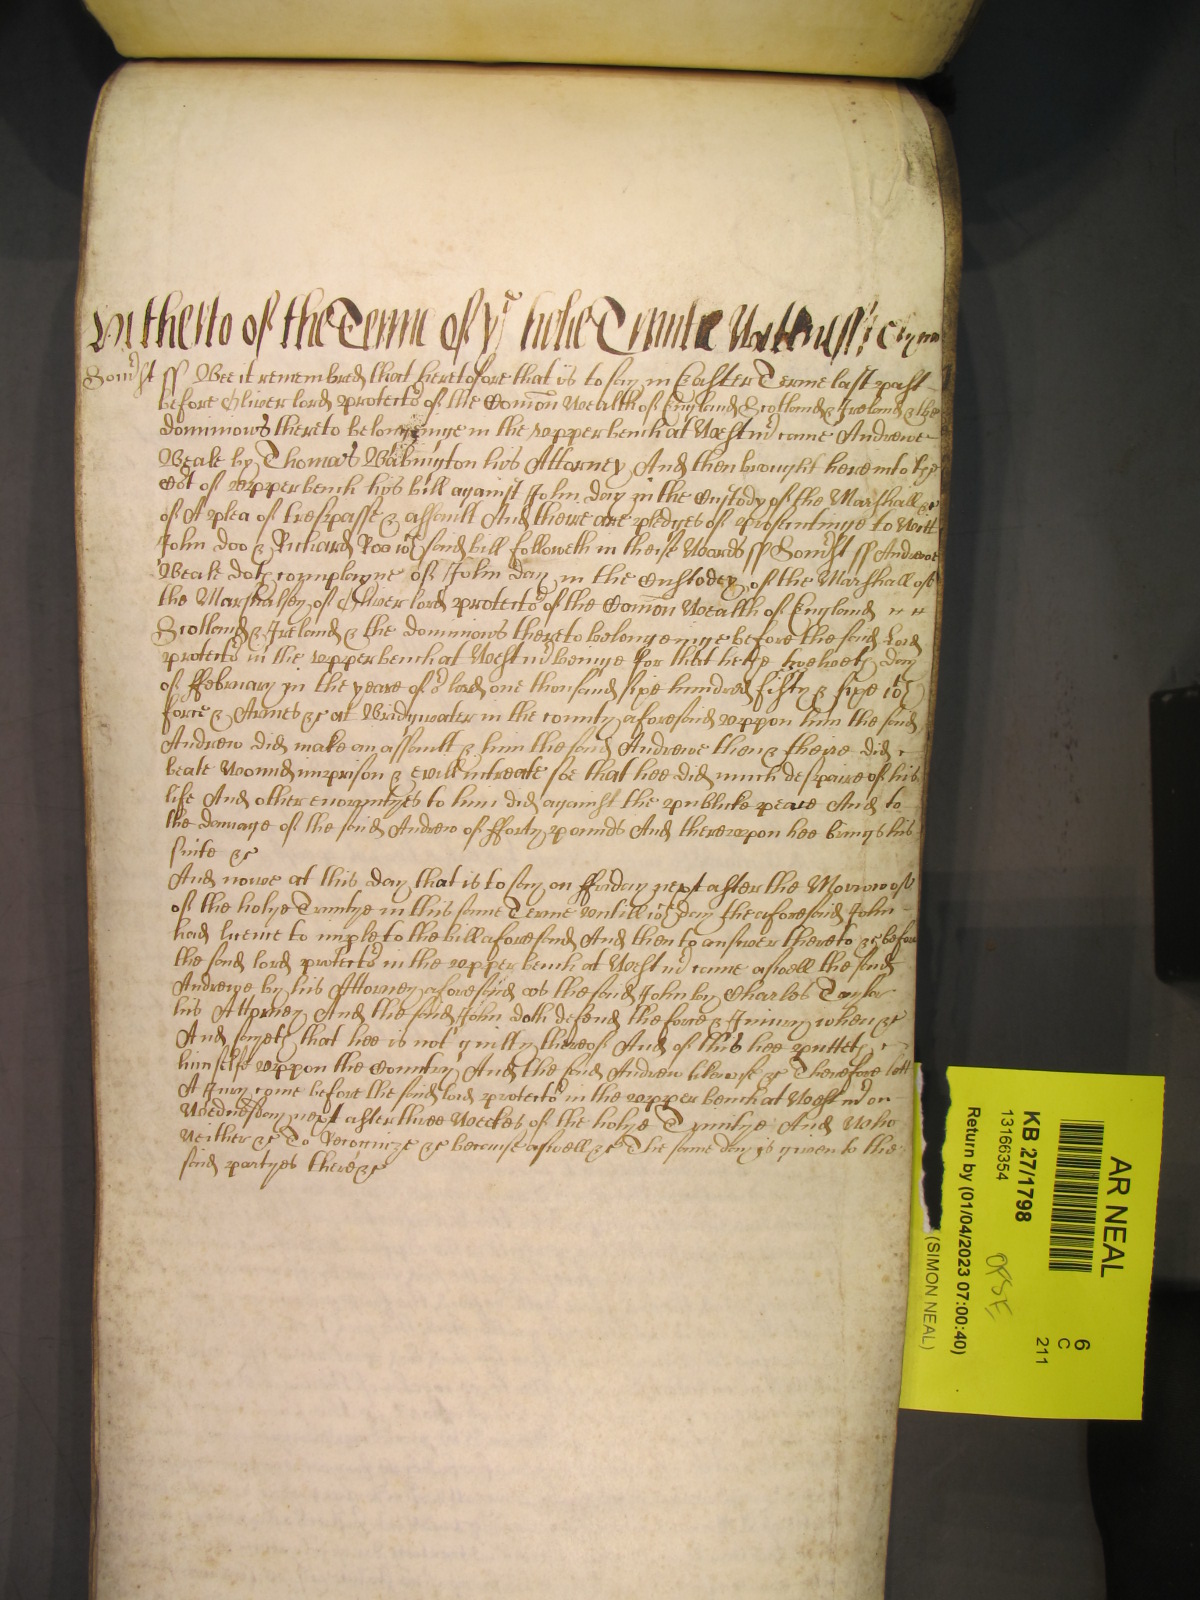 hitherto of the Terme of ye holie Trinitie Wittness
Som'st ss Bee it remembred that heretofore that is to say in Easter Terme last past
before Oliver lord protector of the Comon Wealth of England Scotland & Ireland & the
dominions thereto belonginge in the vpper bench at Westm' came Andrewe
Beale by Thomas Babington his Attorney And then brought here into the
Cort of vpper bench his bill against John Day in the Custody of the Marshall &c
of A plea of trespasse & assault And there are pledges of prosecutinge to Witt
John Doo & Richard Roo wch said bill followeth in theise Words ss Som'st ss Andrewe
Beale doth complayne of John Day in the Custodey of the Marshall of
the Marshalsey of Oliver lord protector of the Comon Wealth of England
Scotland & Ireland & the dominions thereto belongeinge before the said Lord
protector in the vpper bench at Westm' beinge for that hee the twelveth day
of ffebruary in the yeare of or lord one thousand sixe hundred fifty & sixe wth
force & Armes &c at Bridgwater in the county aforesaid vppon him the said
Andrew did make an assault & him the said Andrewe then & theire did
beate Wound imprison & evill intreate soe that hee did much despaire of his
life And other enormityes to him did against the publicke peace And to
the damage of the said Andrew of fforty pounds And therevppon hee brings his
suite &c
And nowe at this day that is to say on ffriday next after the Morrow of
of the holye Trinitye in this same Terme vntill wch day the aforesaid John
had licence to imple to the bill aforesaid And then to answer thereto &c before
the said lord protector in the vpper bench at Westm' came aswell the said
Andrewe by his Attorney aforesaid as the said John by Charles Taylor
his Attorney And the said John doth defend the force & Iniury when &c
And sayeth that hee is not guilty thereof And of this hee putteth
himselfe vppon the Country And the said Andrew likewise &c Therefore lett
A Jury come before the said lord protector in the vpper bench at Westm' on
Wednesday next after three Weekes of the holye Trinitye And Who
Neither &c To Recognize &c because aswell &c The same day is given to the
said partyes there &c
AR NEAL
6
C
211
KB 27/1798
13166354
OPSE
Return by (01/04/2023 07:00:40)
(SIMON NEAL)